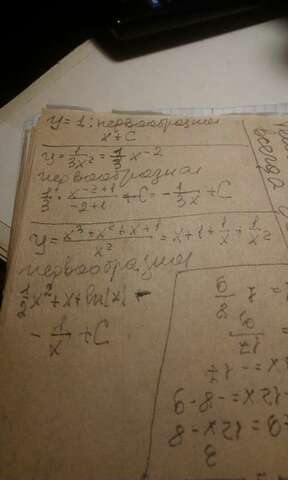 y = 1: первообразная
x + C
y = 1/(3x²) = 1/3 x⁻²
первообразная
1/3 · x⁻²⁺¹/(-2+1) + C = - 1/(3x) + C
y = (x³ + x² + x + 1)/x² = x + 1 + 1/x + 1/x²
первообразная
x² + x + ln|x| -
- 1/x + C
всегда
= 1 8/9
x = - 17
-12x = -8 - 9
9 = 12x - 8
3